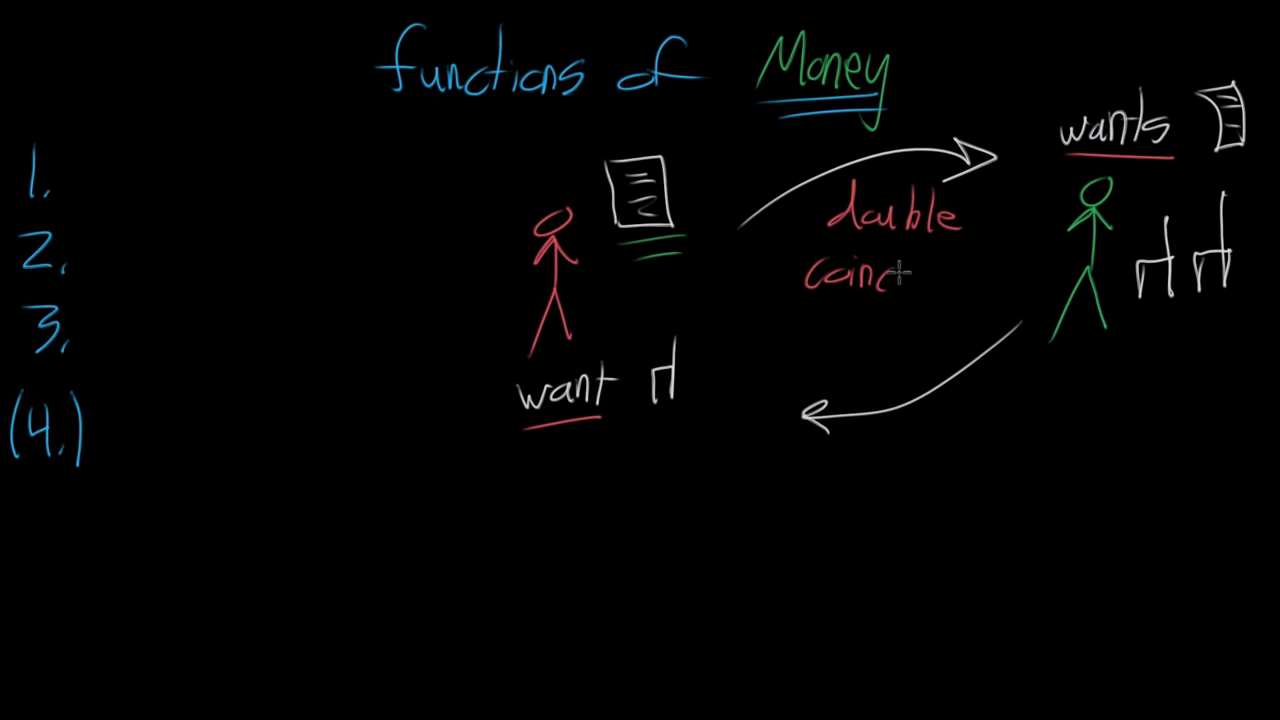 functions of Money
wants
1.
double
2.
coinc
3.
want
(4.)